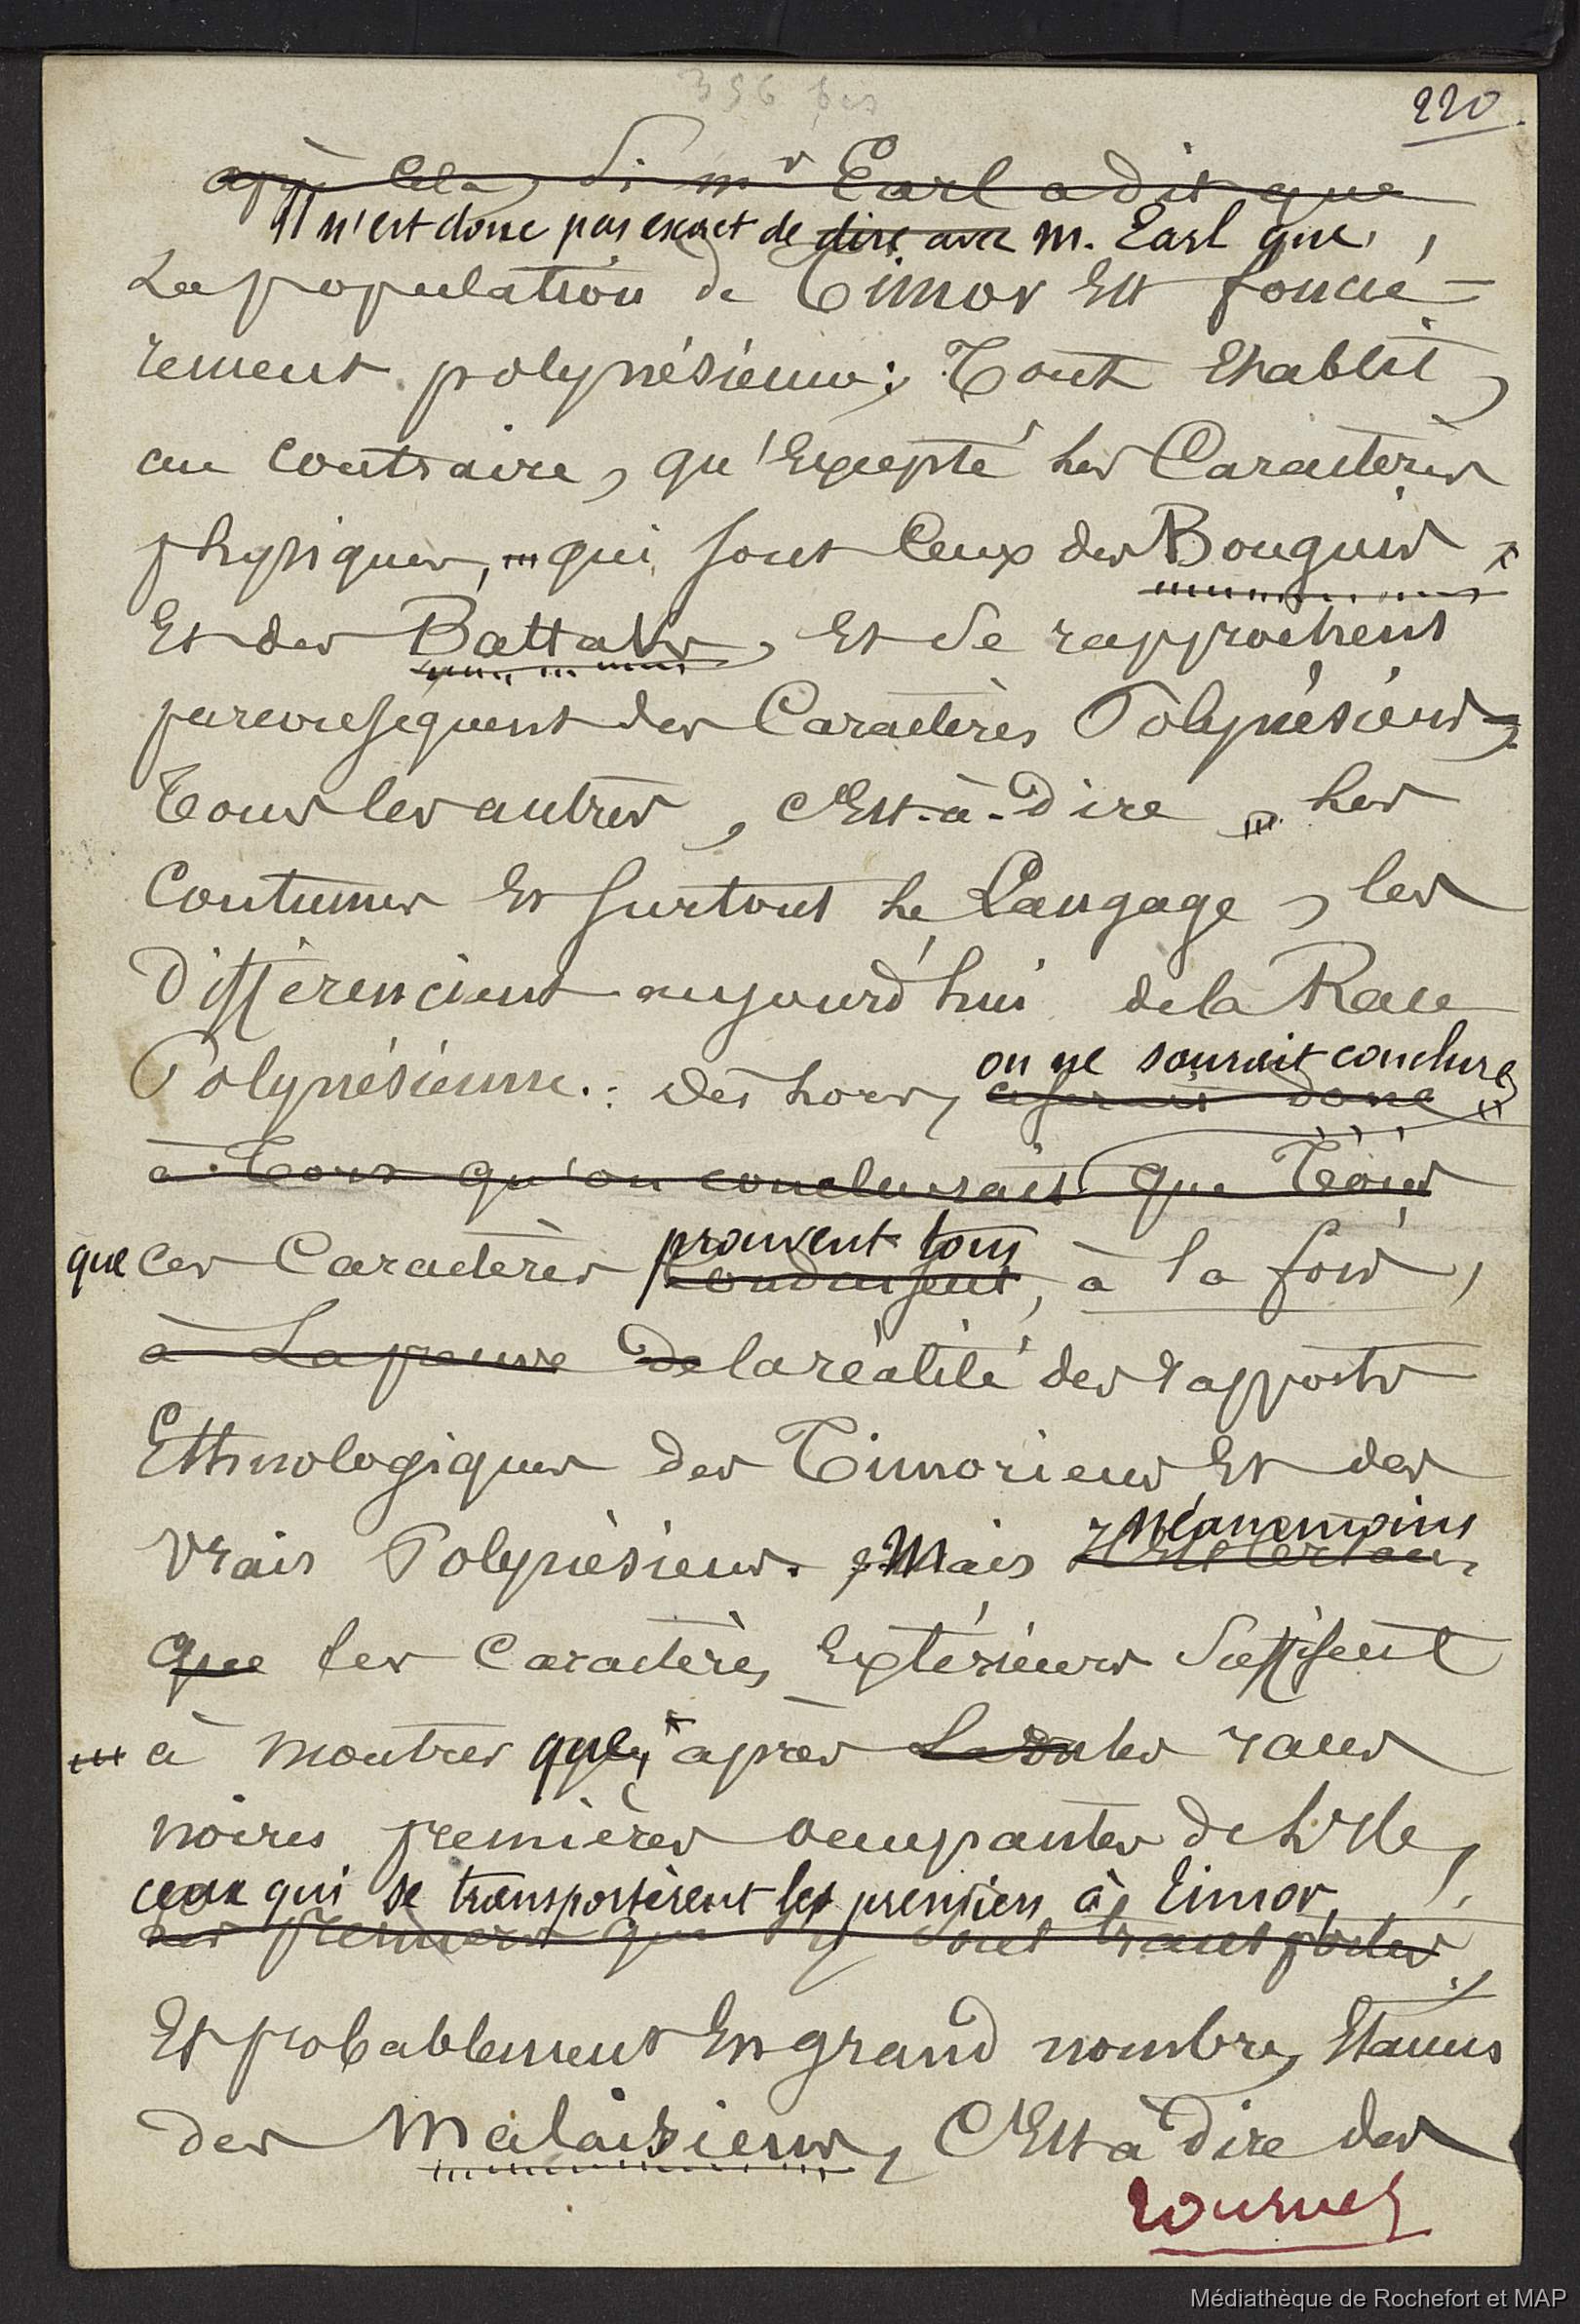 356 bis
220
après cela, Si mr Earl a dit que
Il n'est donc pas exact de dire avec M. Earl que,
La population de Timor Est fonciè-
rement polynésienne; Tout Etablit,
au contraire, qu'Excepté les Caractères
physiques, qui sont Ceux des Bouguis
Et des Battaks, Et Se rapprochent
par conséquent des Caractères Polynésiens,
Tous les autres, c'Est-à-Dire les
Coutumes Et surtout le Langage, les
Différencient aujourd'hui de la Race
Polynésienne. : Dès lors,
on ne saurait conclure
ce serait donc
à Tort qu'on conclurait que Tous
que ces Caractères
prouvent tous
conduisent, à la fois,
à La preuve de la réalité des rapports
Ethnologiques des Timoriens Et des
Vrais Polynésiens. Mais
néanmoins
il Est Certain
que les Caractères Extérieurs Suffisent
à montrer que, après les races
noires premières occupantes de l'Ile,
ceux qui se transportèrent les premiers à Timor,
les premiers qui s'y sont transportés,
Et probablement En grand nombre, Etaient
des Malaisiens, C'Est à Dire des
tournez
Médiathèque de Rochefort et MAP